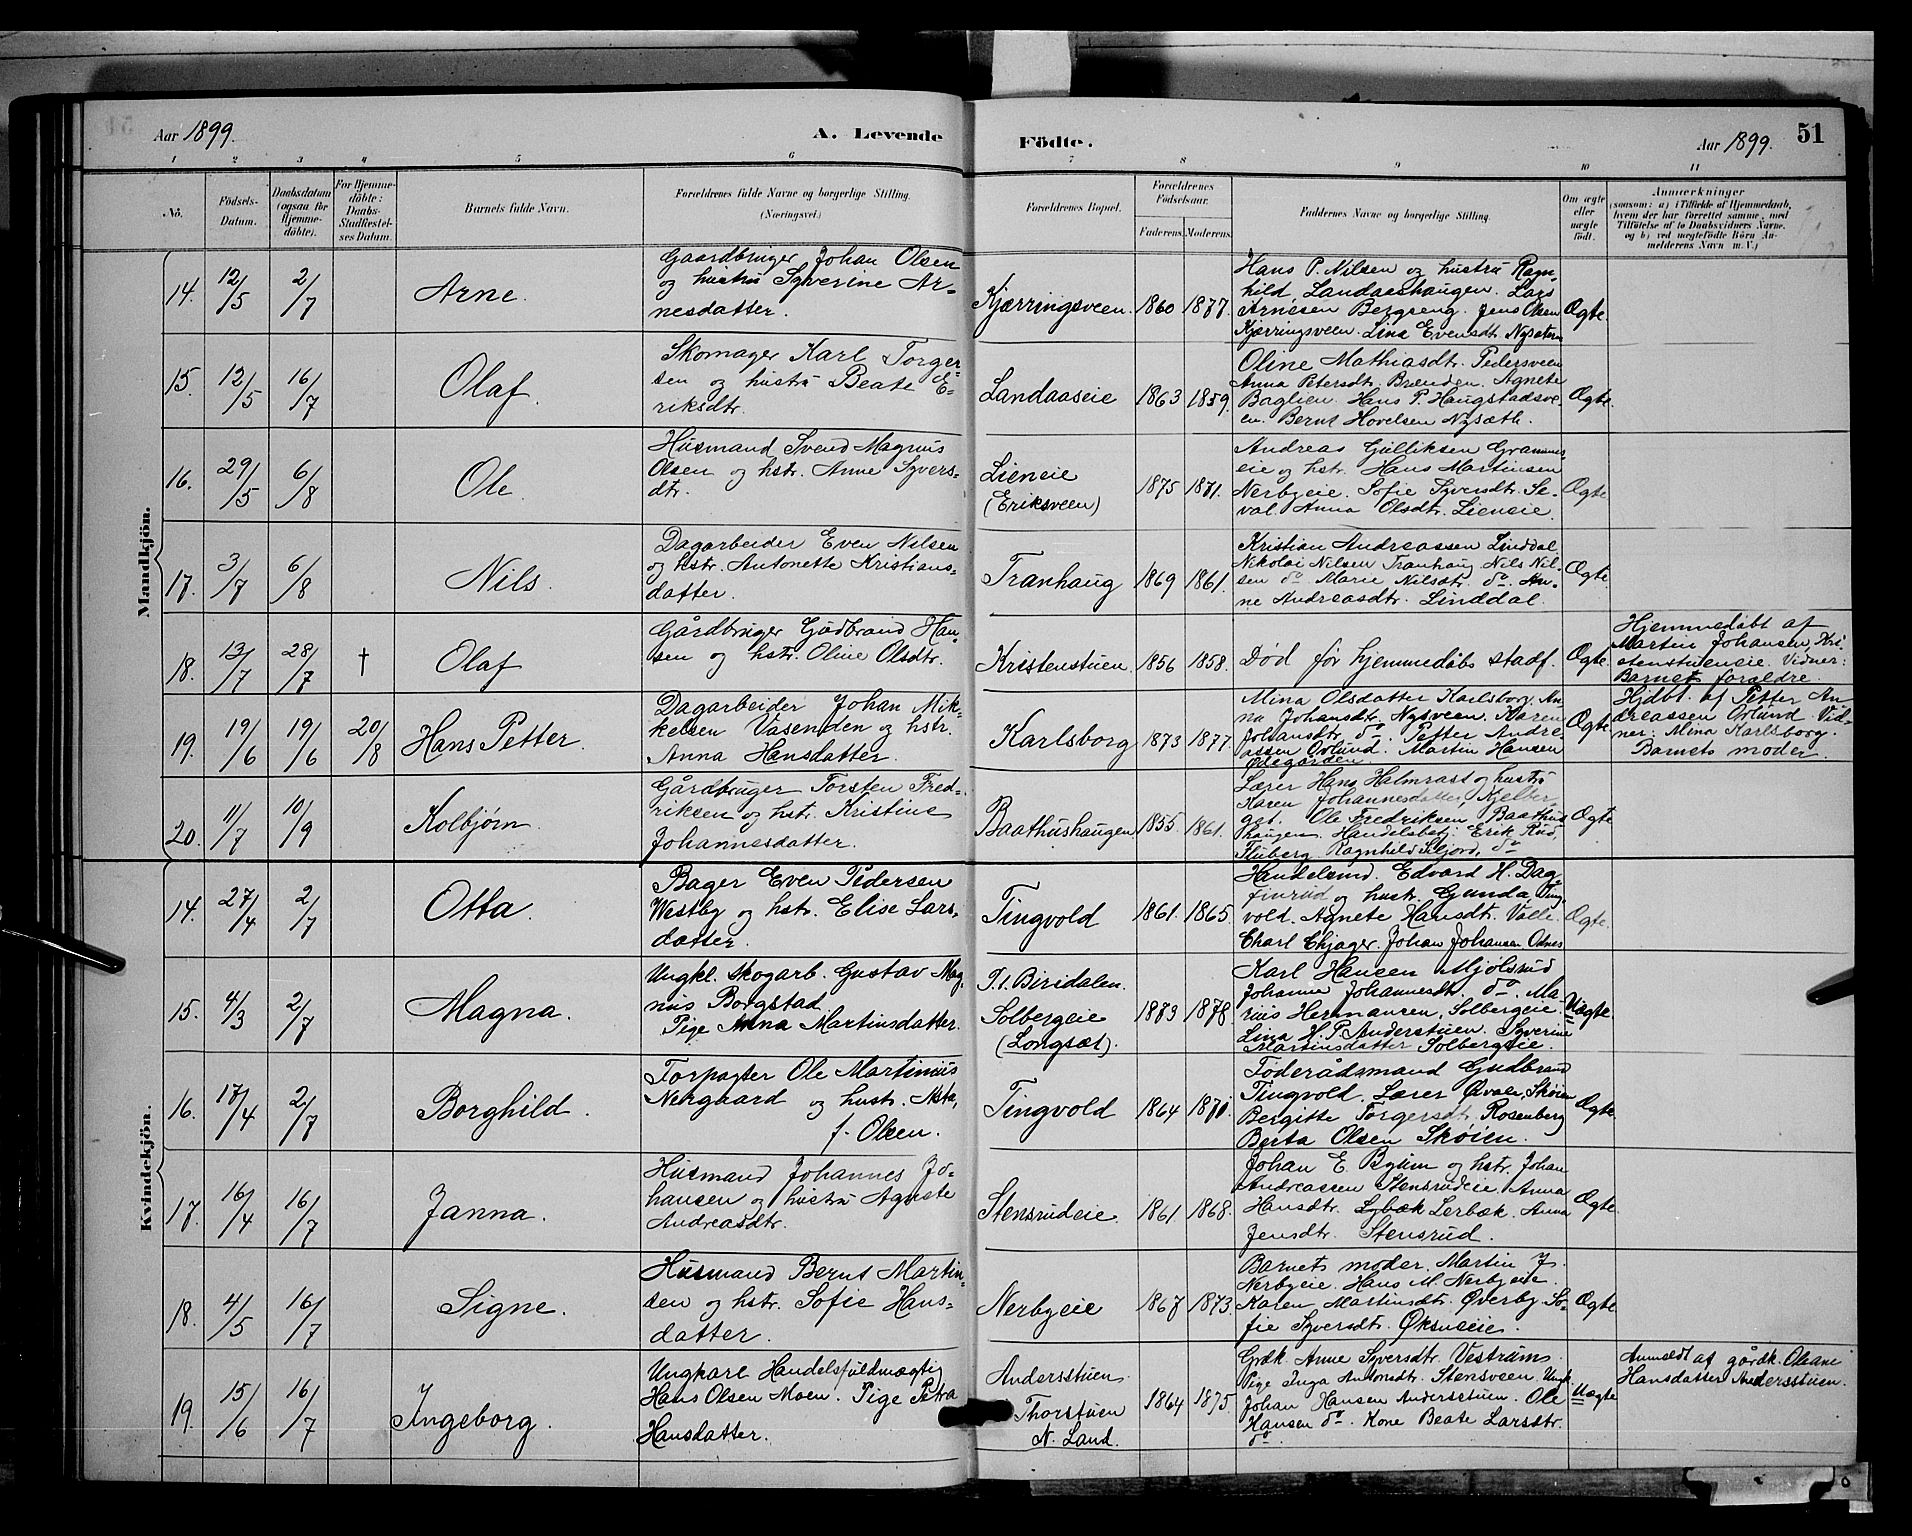 Aar 1899.
A. Levende Födte.
Aar 1899. 51
1 2 3 4 5 6 7 8 9 10 11
Nö.
Födsels-Datum.
Daabsdatum (ogsaa for Hjemme-döbte).
For Hjemme-döbte: Daabs-Stadfæstel-ses Datum.
Barnets fulde Navn.
Forældrenes fulde Navne og borgerlige Stilling. (Næringsvei.)
Forældrenes Bopæl.
Forældrenes Födselsaar.
Faderens. Moderens.
Faddernes Navne og borgerlige Stilling.
Om ægte eller uægte födt.
Anmærkninger
(saasom: a) i Tilfælde af Hjemmedaab,
hvem der har forrettet samme, med
Tilföielse af to Daabsvidners Navne.
og b) ved uægtefödte Börn An-
melderens Navn m. V.)
Mandkjön.
14. 12/5 2/7 Arne.
Gaardbruger Johan Olsen
og hustru Syverine Ar-
nesdatter.
Kjærringsveen. 1860 1877.
Hans P. Nilsen og hustru Ragn-
hild, Landaashaugen. Lars
Arnesen Bergseng. Jens Olsen
Kjærringsveen. Lina Evensdt. Nysæteren
Ægte.
15. 12/5 16/7 Olaf.
Skomager Karl Torger-
sen og hustru Beate E-
riksdtr.
Landaaseie 1863 1859.
Oline Mathiasdt. Pedersveen
Anna Petersdt. Brenden. Agnete
Baglien. Hans P. Haugstadsve-
en. Bernt Hovelsen Nysæth.
Ægte.
16. 29/5 6/8 Ole.
Husmand Svend Magnus
Olsen og hstr. Anne Syvers-
dtr.
Lieneie
(Eriksveen)
1875 1871.
Andreas Gulliksen Grammes-
eie og hstr. Hans Martinsen
Nerbyeie. Sofie Syversdtr. Se-
val. Anna Olsdtr. Lieneie.
Ægte
17. 3/7 6/8 Nils.
Dagarbeider Even Nilsen
og hstr. Antonette Kristians-
datter.
Tranhaug 1869 1861.
Kristian Andreassen Linddal
Nikolai Nilsen Tranhaug Nils Nil-
sen do. Marie Nilsdtr. do. An-
ne Andreasdtr. Linddal.
Ægte
18. 13/7 28/7 † Olaf
Gårdbruger Gudbrand Han-
sen og hstr. Oline Olsdtr.
Kristenstuen. 1856 1858.
Død før hjemmedåbs stadf.
Ægte.
Hjemmedöbt af
Martin Johansen, Kri-
stenstueneie. Vidner:
Barnets forældre.
19. 19/6 19/6 20/8 Hans Petter.
Dagarbeider Johan Mik-
kelsen Vasenden og hstr.
Anna Hansdatter.
Karlsborg 1873 1877.
Mina Olsdatter Karlsborg. An-
na Johansdt. Nysveen. Karen
Johansdt. do. Petter Andre
assen Orlund. Martin Hansen
Ødegården.
Ægte
Hjdbt. af Petter An-
dreassen Orlund. Vid-
ner: Mina Karlsborg.
Barnets moder.
20. 11/7 10/9 Kolbjørn.
Gårdbruger Torsten Fred-
riksen og hstr. Kristine
Johannesdatter.
Baathushaugen 1855. 1861.
Lærer Hans Halmrast og hustru
Karen Johannesdatter, Kjelber-
get. Ole Fredriksen Baathus
haugen. Handelsbetj. Erik Rus,
Fluberg. Ragnhild Liljord, do
Ægte
Kvindekjön.
14. 27/4 2/7 Otta.
Bager Even Pedersen
Westby og hstr. Elise Lars-
datter.
Tingvold 1861. 1865.
Handelsmd. Edvard H. Dag
finrud og hustr. Gunda, Ting
vold. Agnete Hansdt. Valle.
Charl Chjager. Johan Johansen Odnes
Ægte.
15. 4/3 2/7 Magna.
Ungkl. Skogarb. Gustav Mag-
nus Borgstad
Pige Anna Martinsdatter.
P. t. Biridalen.
Solbergeie
(Longsæt).
1873 1878.
Karl Hansen Mjølsrud
Johanne Johannesdt. do. Ma-
rius Hermansen, Solbergeie.
Lina H. P. Anderstuen. Syverine
Martinsdatter Solbergeie.
Uægte
16. 17/4 2/7 Borghild.
Forpagter Ole Martinius
Nehgaard og hustr. Asta,
f. Olsen.
Tingvold 1864 1870.
Föderådsmand Gudbrand
Tingvold. Lærer Øvale, Skøien
Bergitte Torgersdt. Rosenberg
Berta Olsen Skøien.
Ægte.
17. 16/4 16/7 Janna.
Husmand Johannes Jo-
hansen og hustru Agnete
Andreasdtr.
Stensrudeie. 1861 1868.
Johan E. Bylum og hstr. Johan
Andreassen Stensrudeie. Anna
Hansdtr. Lybæk Lerbæk. Anna
Jensdtr. Stensrud.
Ægte.
18. 4/5 16/7 Signe.
Husmand Bernt Martin-
sen og hstr. Sofie Hans-
datter.
Nerbyeie 1867 1873.
Barnets moder. Martin J.
Nerbyeie. Hans M. Nerbyeie.
Karen Martinsdtr. Øverby. So-
fie Syversdtr. Øksneeie.
Ægte
19. 15/6 16/7 Ingeborg.
Ungkarl Handelsfuldmægtig
Hans Olsen Moen. Pige Petra
Hansdatter.
Andersstuen
Thorstuen
N. Land.
1864 1875.
Grdk. Anne Syversdtr. Vestrums.
Pige Inga Antondt. Stensveen. Ungk
Johan Hansen Andersstuen. Ole
Hansen do. Kone Beate Larsdtr.
do.
Uægte
Anmeldt af gårdk. Oleane
Hansdatter Andersstuen.